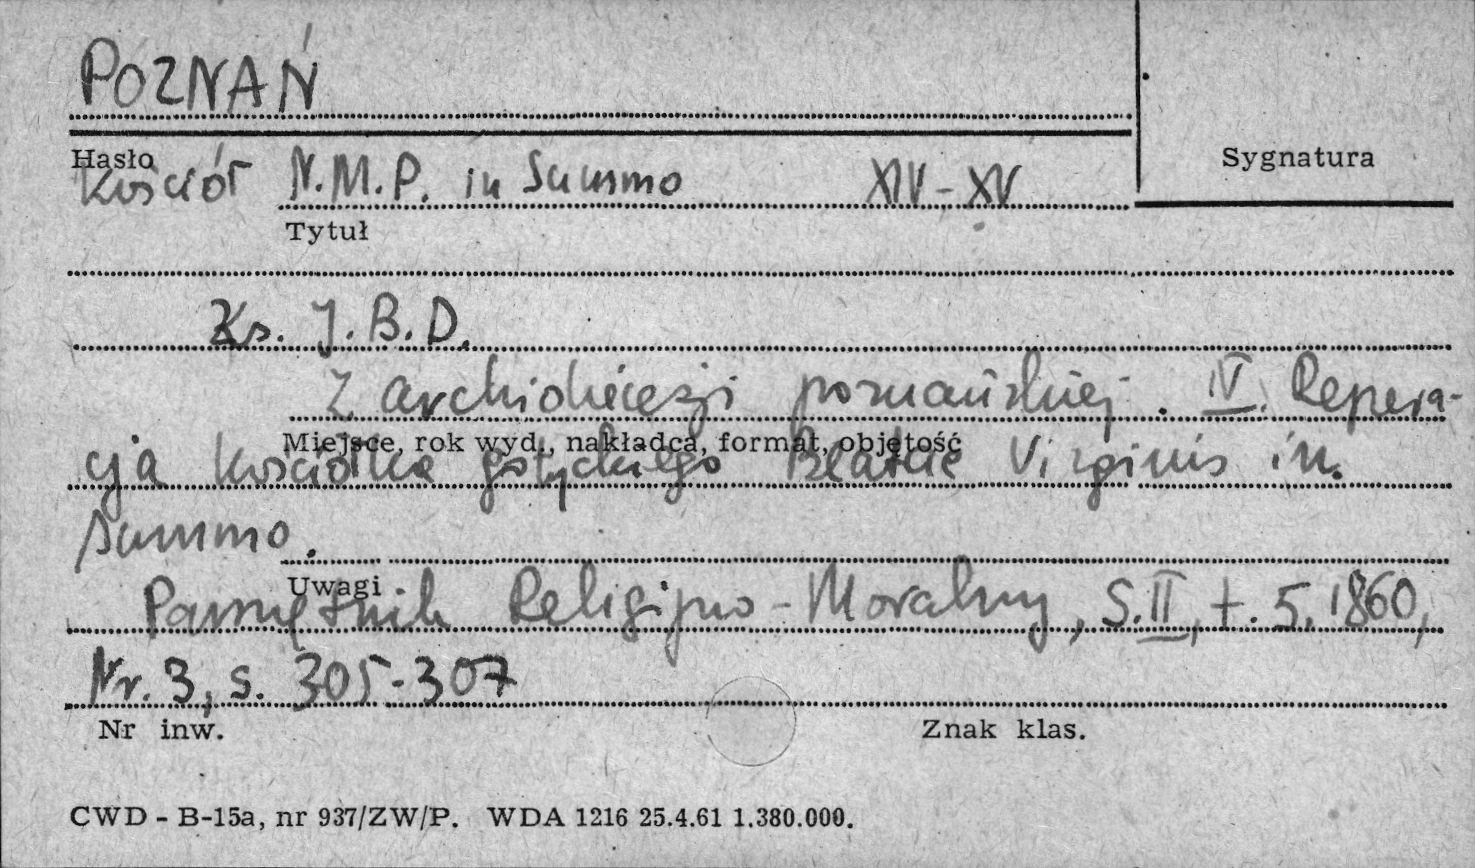 POZNAŃ
Hasło
Sygnatura
Kościół N.M.P. in Summo XIV-XV
Tytuł
Ks. J.B.D.
Z archidiecezji poznańskiej. IV. Repera-
Miejsce, rok wyd., nakładca, format, objętość
cja kościółka gotyckiego Beatae Virginis in.
summo.
Uwagi
Pamiętnik Religijno-Moralny, S.II, t. 5, 1860,
Nr. 3, s. 305-307
Nr inw.
Znak klas.
CWD - B-15a, nr 937/ZW/P. WDA 1216 25.4.61 1.380.000.